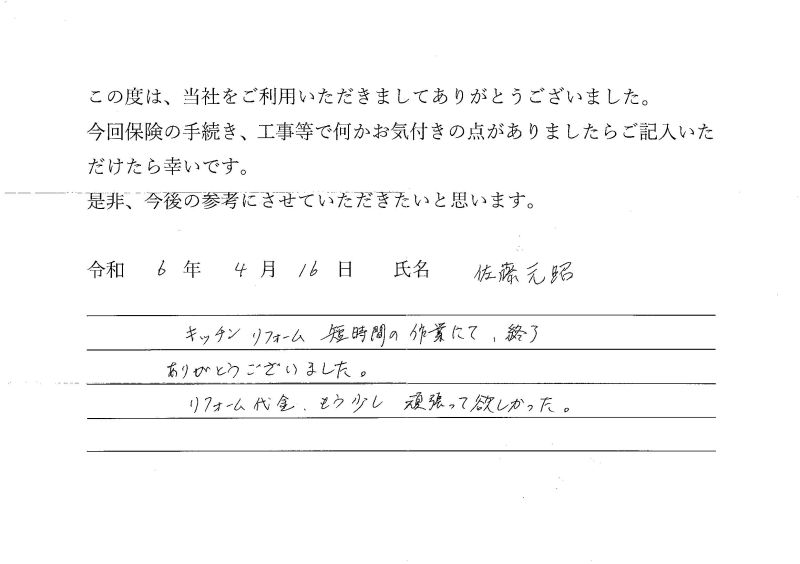 この度は、当社をご利用いただきましてありがとうございました。
今回保険の手続き、工事等で何かお気付きの点がありましたらご記入いた
だけたら幸いです。
是非、今後の参考にさせていただきたいと思います。
令和 6 年 4 月 16 日 氏名 佐藤元昭
キッチンリフォーム 短時間の作業にて、終了
ありがとうございました。
リフォーム代金、もう少し 頑張って欲しかった。